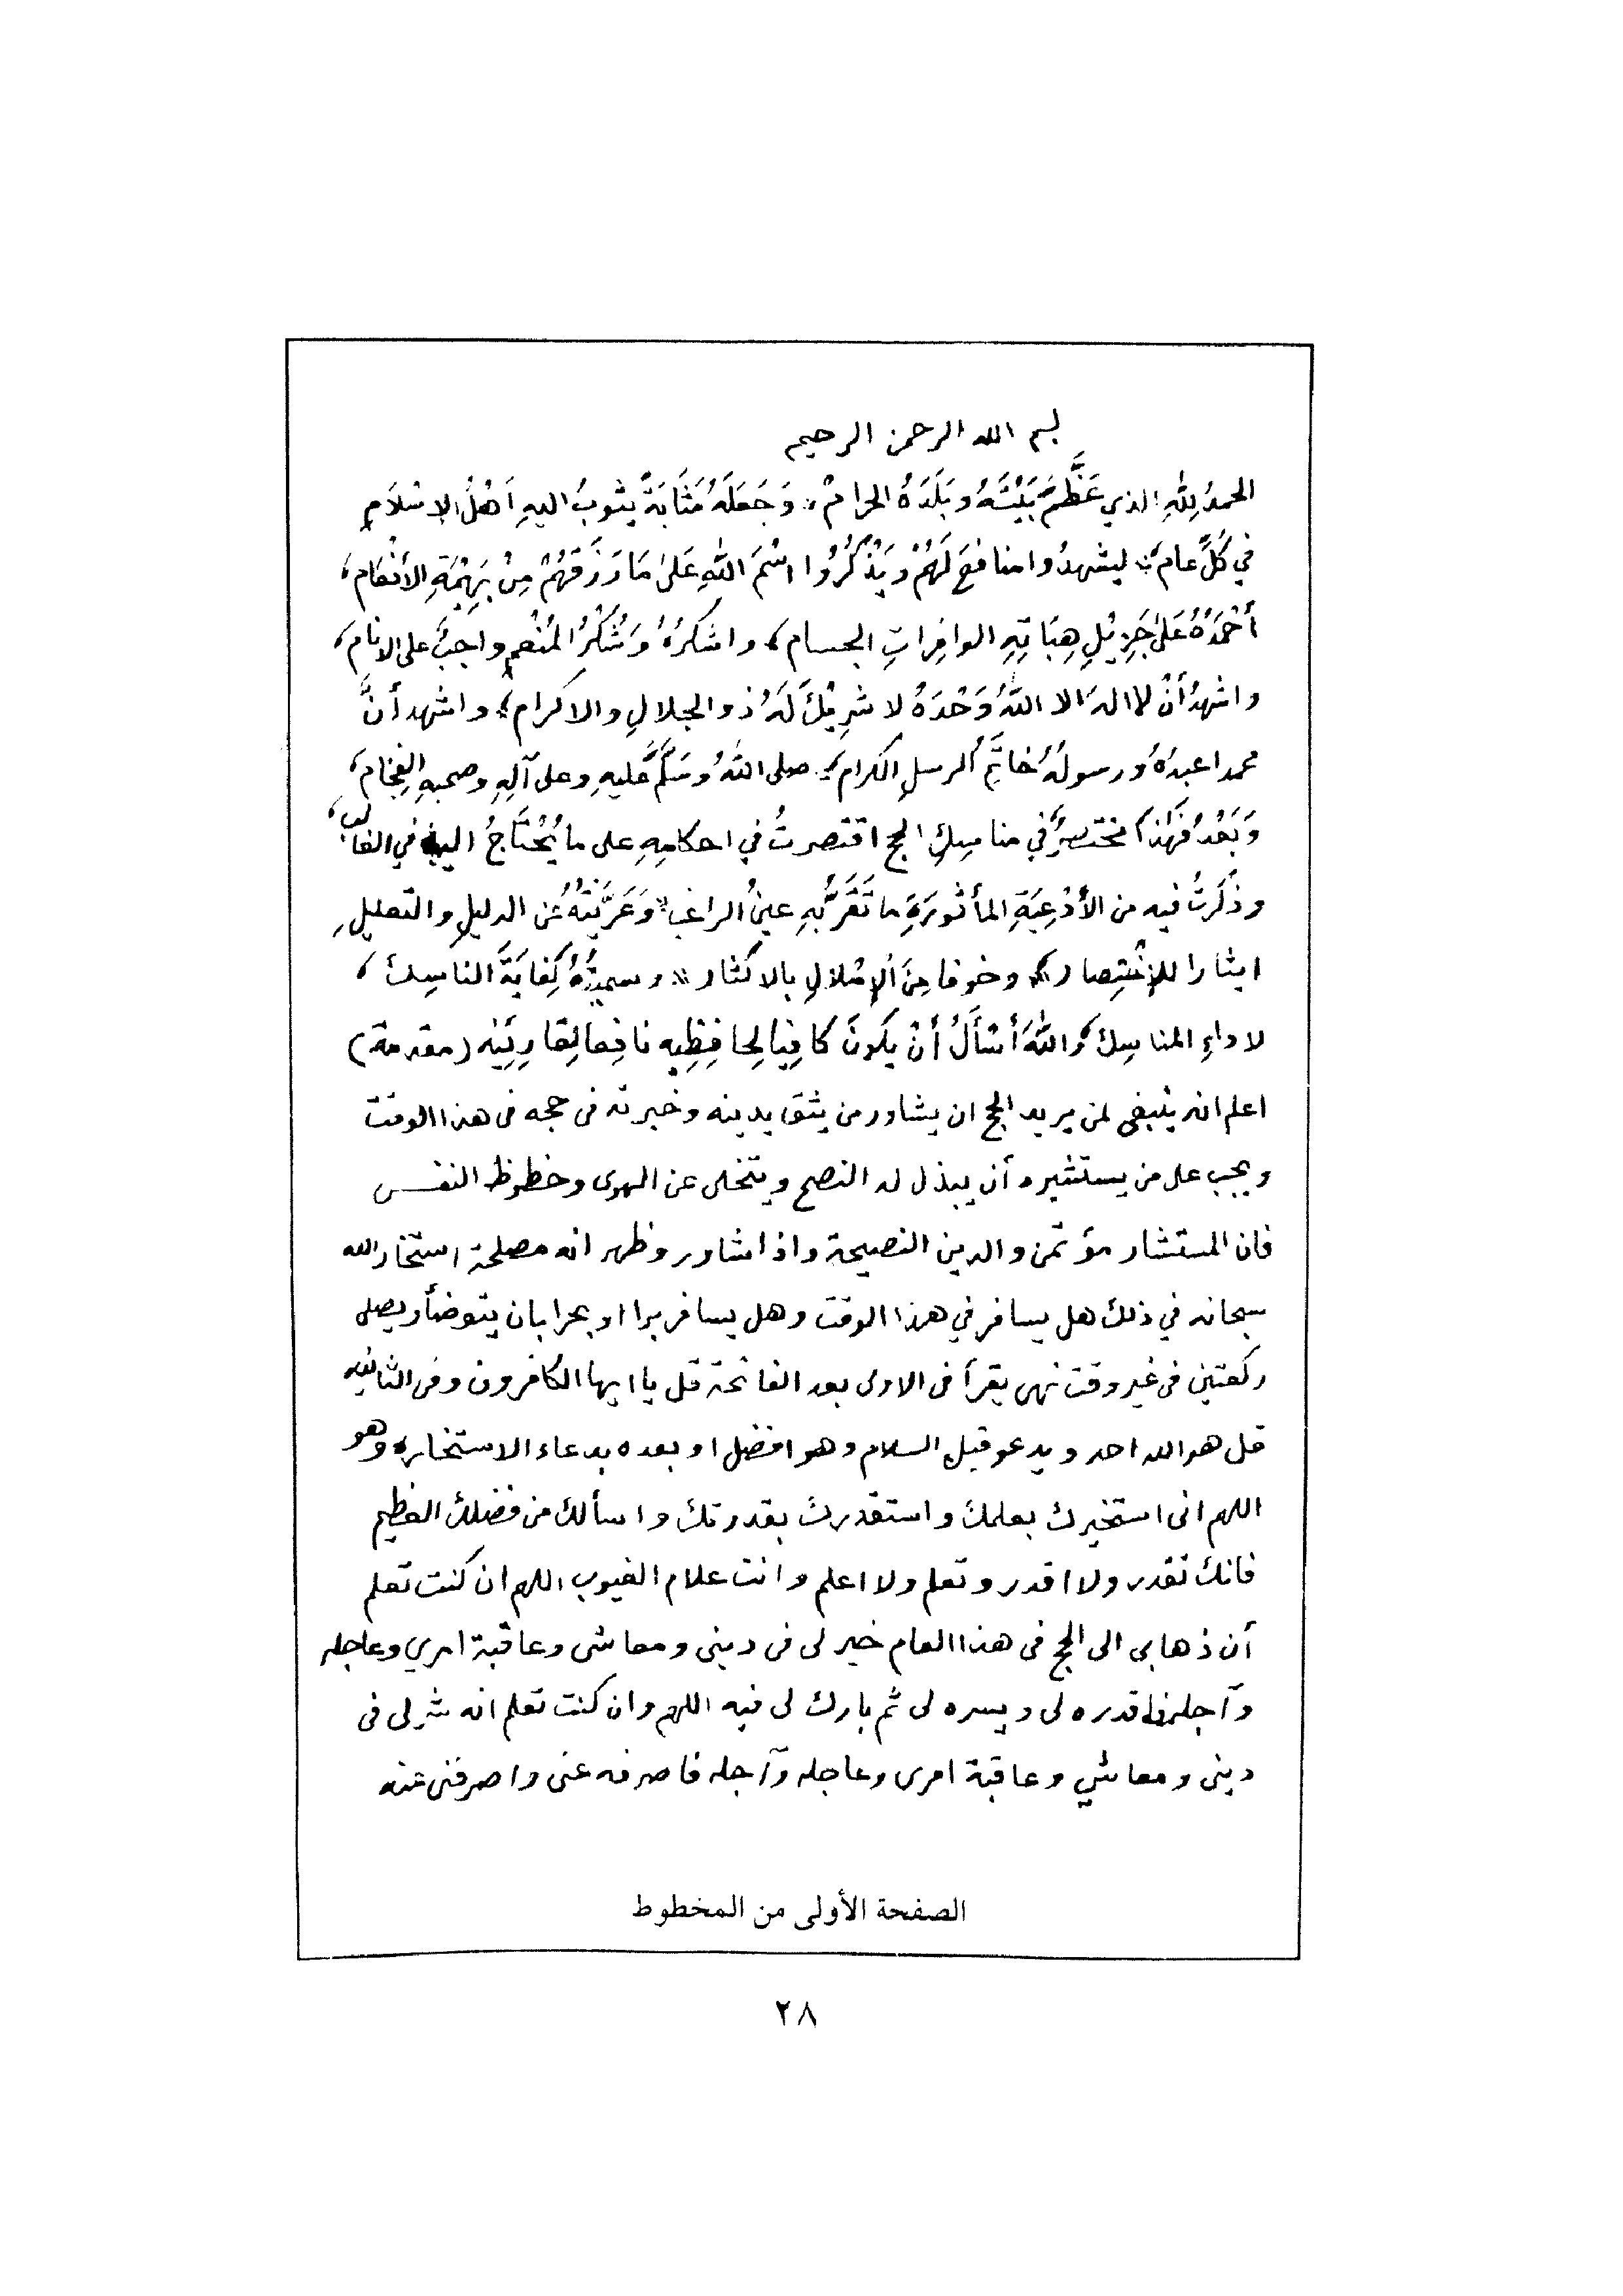 بسم الله الرحمن الرحيم
الحمدُ لِلّهِ الذي عَظَّمَ بَيْتَهُ وبَلَدَهُ الحرامْ، وَجَعَلَهُ مَثَابَةً يثوبُ اليهِ اَهْلُ الإسْلَامِ
في كُلِّ عامْ، ليشهدُوا منافعَ لَهُمْ وَيَذْكُرُوا اسْمَ اللهِ عَلَىٰ مَا رَزَقَهُمْ مِنْ بَهِيْمَةِ الأنْعَام،
أحْمَدُهُ عَلَىٰ جَزِيْلِ هِبَاتِهِ الوافِراتِ الجسام، واشكرُهُ وَشُكْرُ المُنْعِمِ واجبٌ على الانام،
واشهدُ أنْ لا اله الا اللهُ وَحْدَهُ لا شرِيْكَ لَهُ ذو الجلالِ والاكرام، واشهد أنَّ
محمدا عبدُهُ ورسولُهُ خاتَمُ الرسلِ الكرام، صلى اللهُ وسَلَّمَ عليهِ وعلى آلِهِ وصحبهِ الفِخَام،
وَبَعْدُ فَهَذَا مختصرٌ في مناسِكِ الحج اقتصرتُ في احكامِهِ على ما يُحْتَاجُ اليه في الغالب،
وذَكَرتُ فيه من الأدْعِيَةِ المأثورَةِ ما تَقَرُّ بِهِ عينُ الراغب، وَعَرَّيْتُهُ عَنِ الدليلِ والتعليلِ
ايثارا للإخْتِصار، وخوفا مِنَ الإمْلالِ بالاكثار، وسميتُهُ كِفَايَةَ الناسِك،
لاداءِ المناسِك، واللهَ أسْأَلُ أنْ يَكونَ كافِيا لِحافِظِيهِ نافِعا لِقارِئِيْه (مقدمة)
اعلم انه ينبغى لمن يريد الحج ان يشاور من يثق بدينه وخبرته فى حجه فى هذا الوقت
ويجب على من يستشيره أن يبذل له النصح ويتخلى عن الهوى وحظوظ النفس
فان المستشار مؤتمن والدين النصيحة واذا شاور وظهر انه مصلحة استخار الله
سبحانه في ذلك هل يسافر في هذا الوقت وهل يسافر برا او بحرا بان يتوضأ ويصلى
ركعتين فى غير وقت نهى يقرأ فى الاولى بعد الفاتحة قل يا ايها الكافرون وفى الثانية
قل هو الله احد ويدعو قبل السلام وهو افضل او بعده بدعاء الاستخارة وهو
اللهم انى استخيرك بعلمك واستقدرك بقدرتك واسألك من فضلك العظيم
فانك تقدر ولا اقدر وتعلم ولا اعلم وانت علام الغيوب اللهم ان كنت تعلم
أن ذهابى الى الحج فى هذا العام خير لى فى دينى ومعاشى وعاقبة امري وعاجله
وآجله فاقدره لى ويسره لى ثم بارك لى فيه اللهم وان كنت تعلم انه شر لى فى
دينى ومعاشي وعاقبة امرى وعاجله وآجله فاصرفه عنى واصرفنى عنه
الصفحة الأولى من المخطوط
٢٨